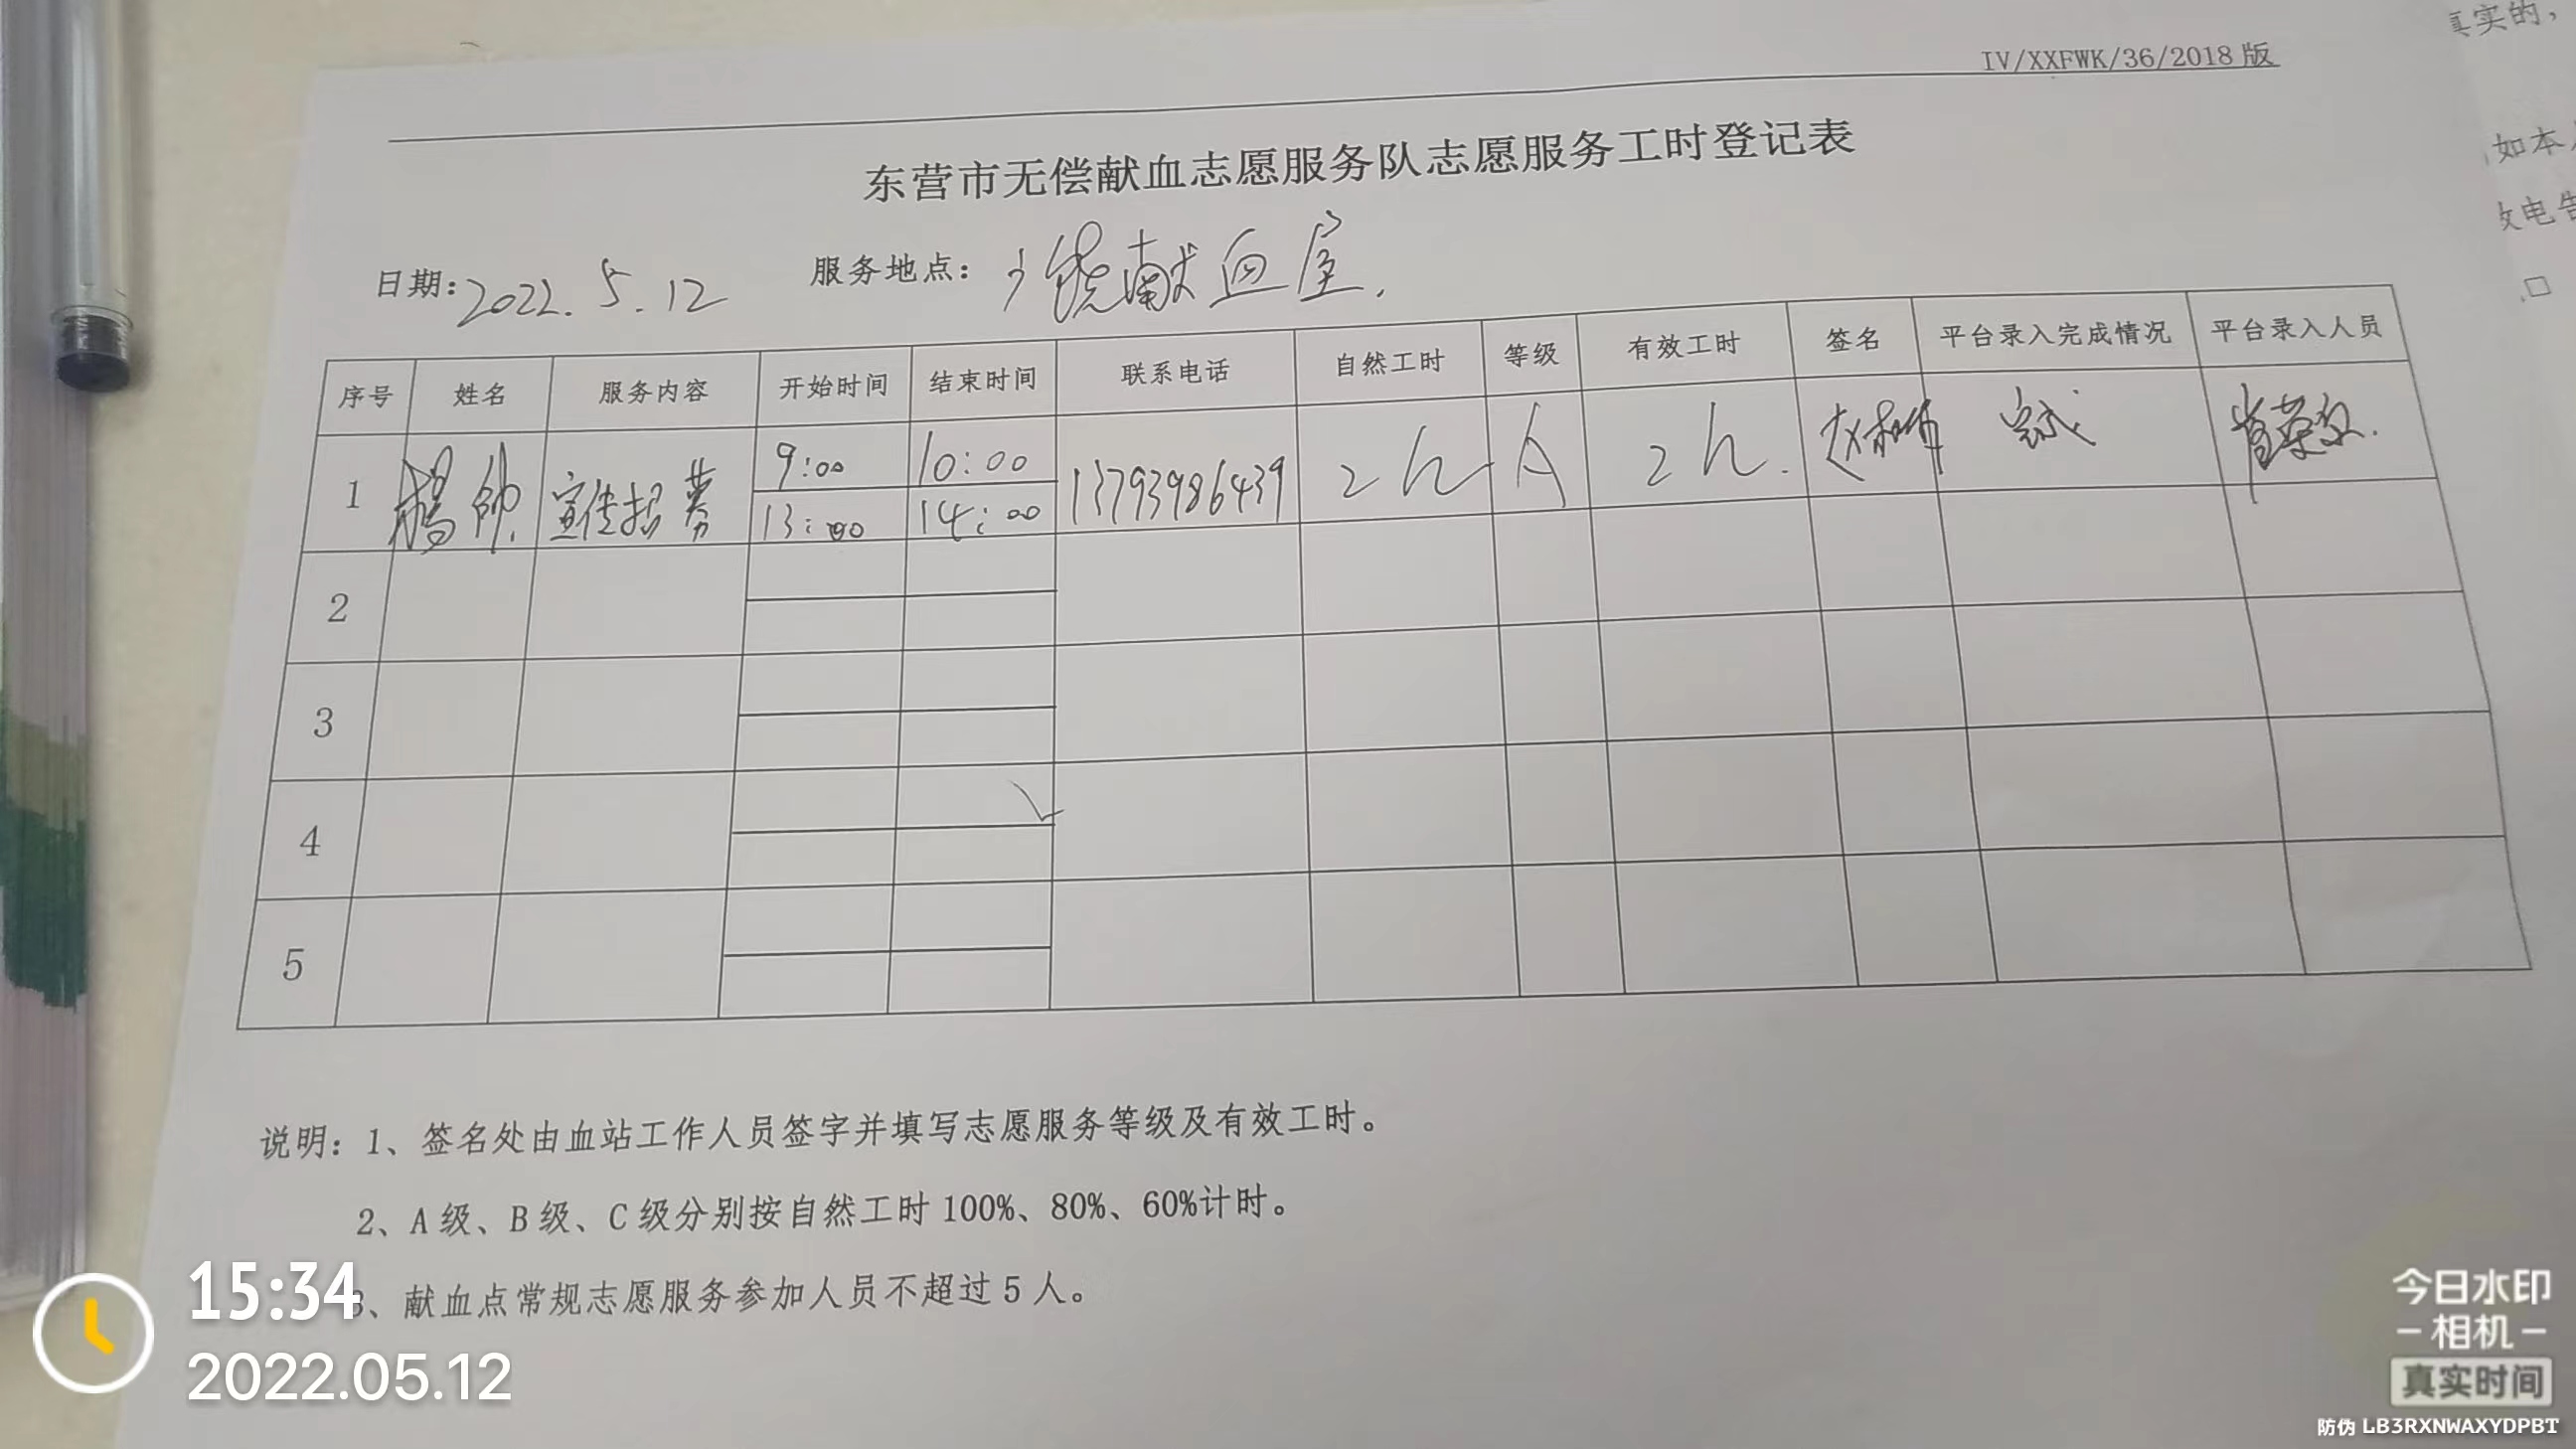 真实的，
IV/XXFWK/36/2018 版
如本
攵电告
东营市无偿献血志愿服务队志愿服务工时登记表
日期：2022.5.12 服务地点：广饶献血屋.
序号 姓名 服务内容 开始时间 结束时间 联系电话 自然工时 等级 有效工时 签名 平台录入完成情况 平台录入人员
1 杨帅. 宣传招募 9:00 10:00 13793986439 2h A 2h. 完成
13:00 14:00
2
3
4
5
说明：1、签名处由血站工作人员签字并填写志愿服务等级及有效工时。
2、A 级、B 级、C 级分别按自然工时 100%、80%、60%计时。
3、献血点常规志愿服务参加人员不超过 5 人。
15:34
2022.05.12
今日水印
相机
真实时间
防伪 LB3RXNWAXYDPBT